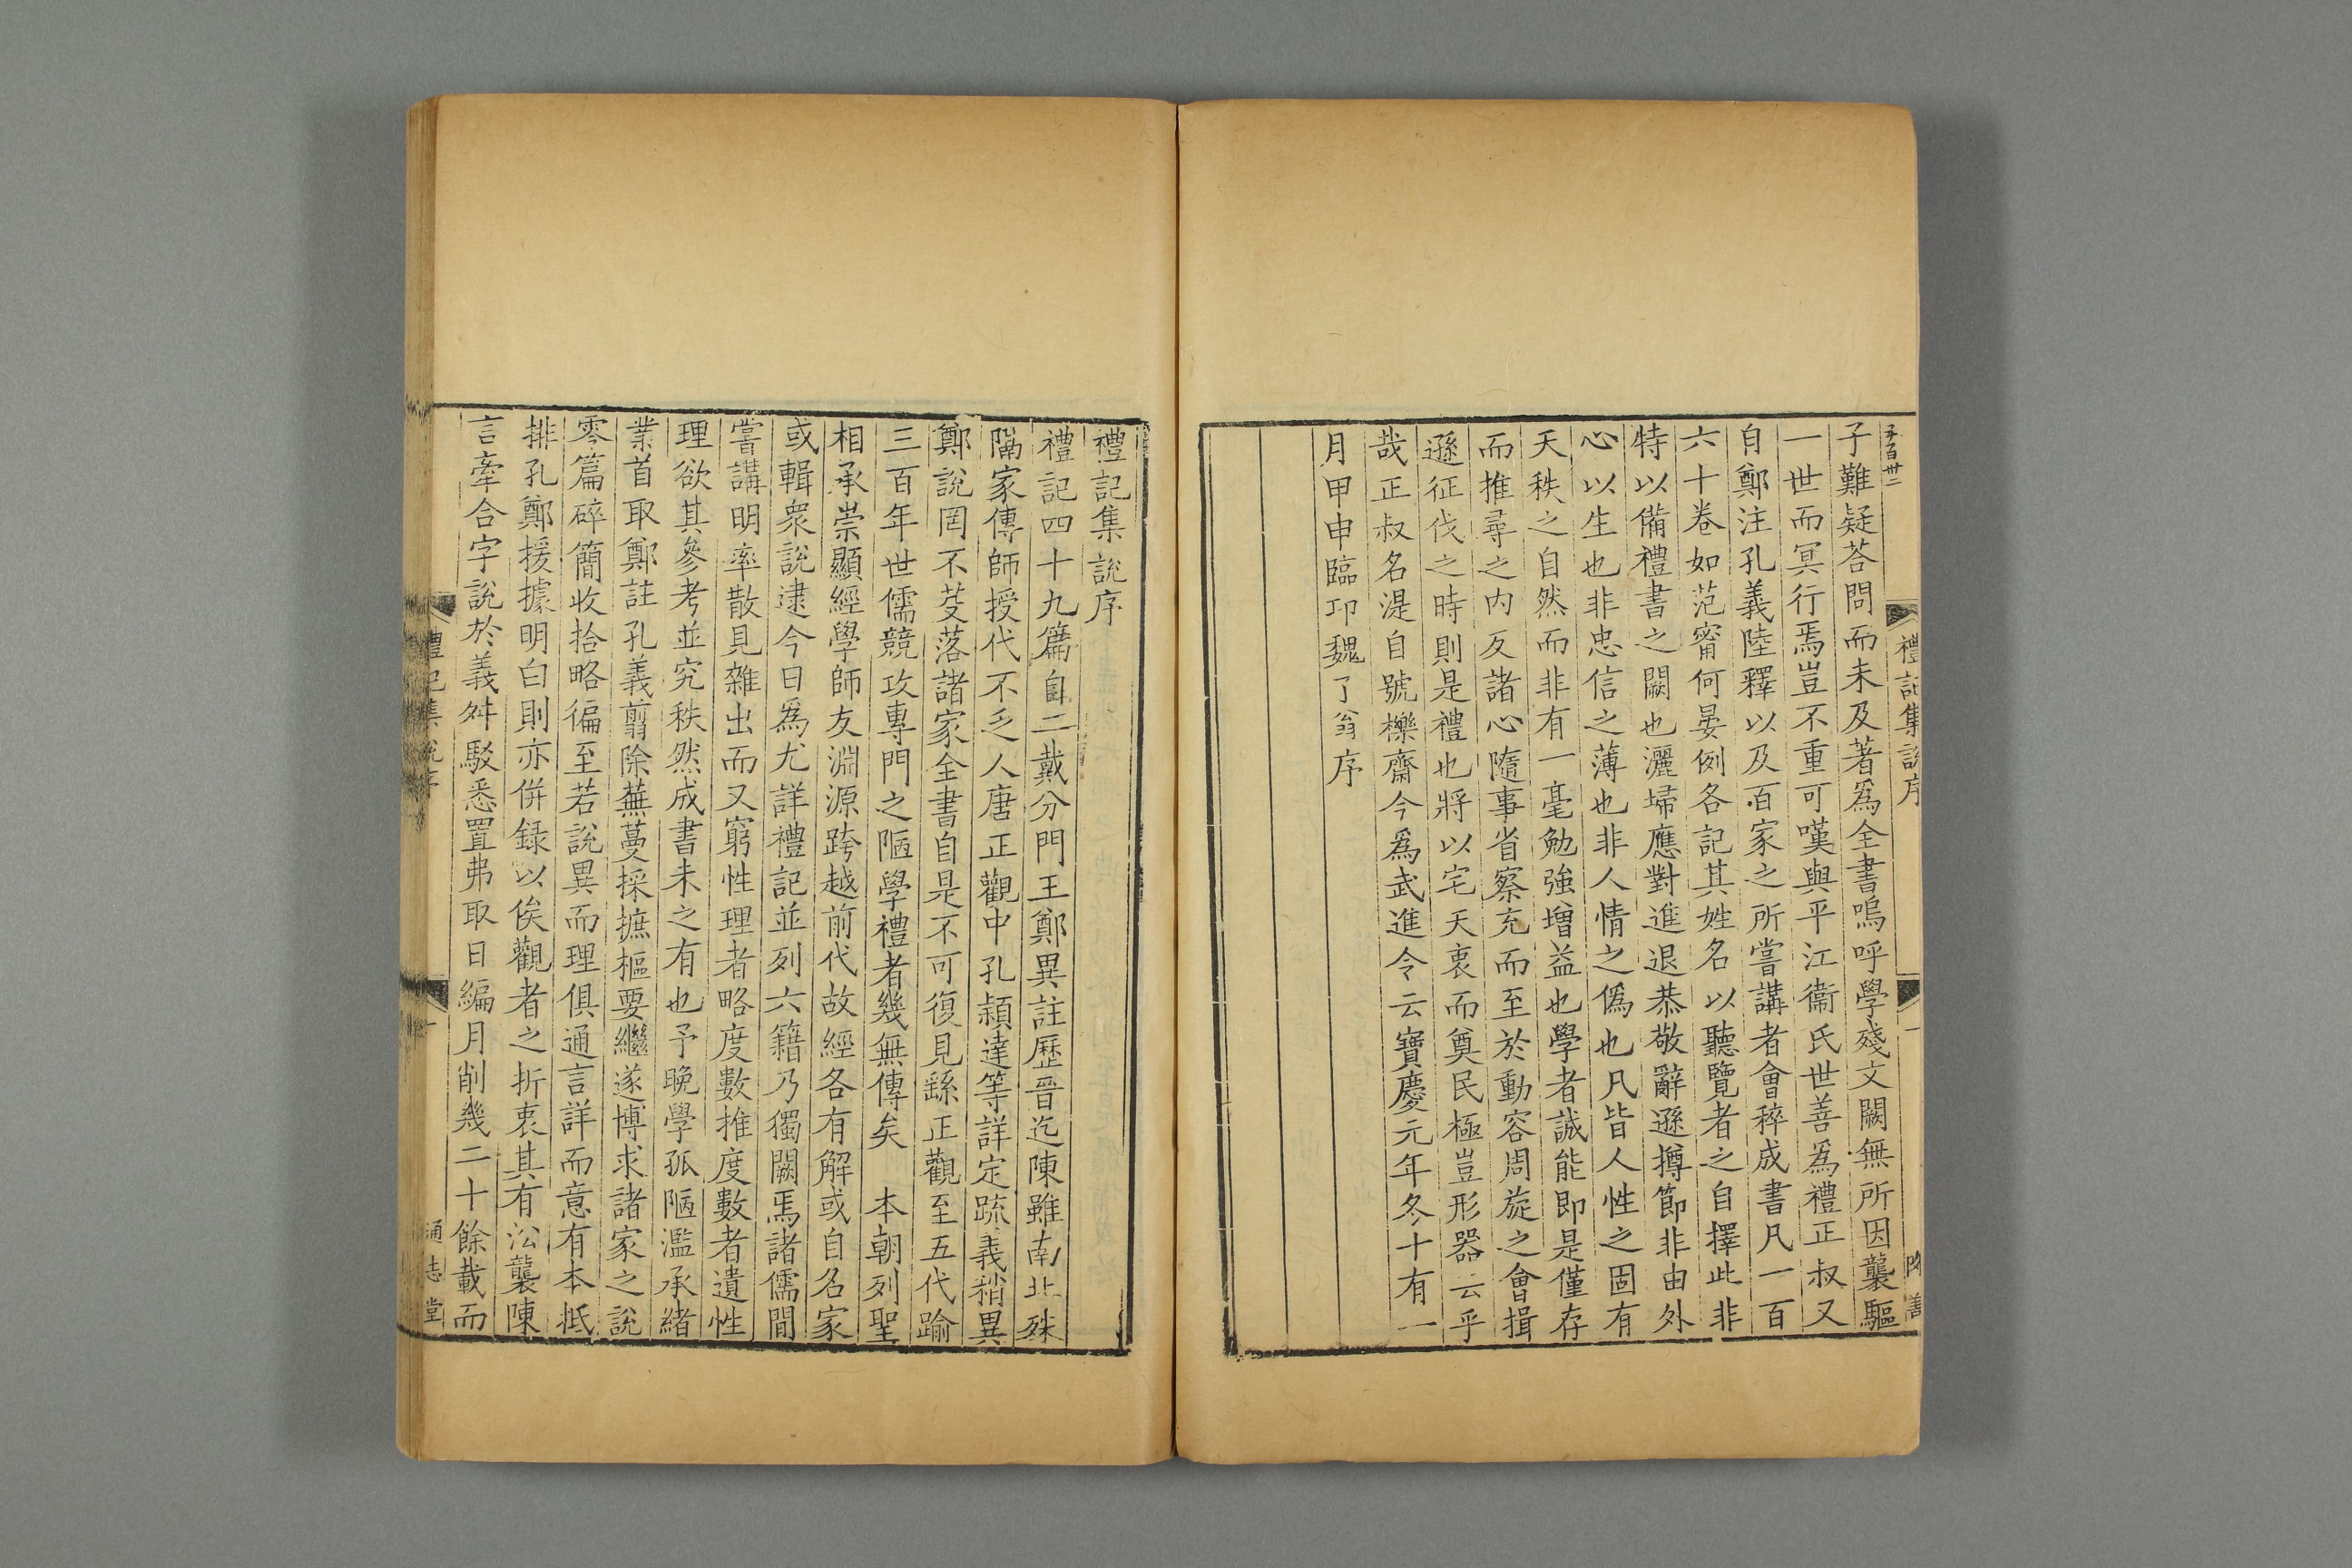 五百卅三
禮記集說序
一
子難疑荅問而未及著爲全書嗚呼學殘文闕無所因襲驅
一世而冥行焉豈不重可嘆與平江衞氏世善爲禮正叔又
自鄭注孔義陸釋以及百家之所嘗講者會稡成書凡一百
六十卷如范甯何晏例各記其姓名以聽覽者之自擇此非
特以備禮書之闕也灑埽應對進退恭敬辭遜撙節非由外
心以生也非忠信之薄也非人情之僞也凡皆人性之固有
天秩之自然而非有一毫勉強增益也學者誠能即是僅存
而推尋之内反諸心隨事省察充而至於動容周旋之會揖
遜征伐之時則是禮也將以宅天衷而奠民極豈形器云乎
哉正叔名湜自號櫟齋今爲武進令云寶慶元年冬十有一
月甲申臨卭魏了翁序
禮記集說序
禮記四十九篇自二戴分門王鄭異註歷晉迄陳雖南北殊
隔家傳師授代不乏人唐正觀中孔穎達等詳定疏義稍異
鄭說罔不芟落諸家全書自是不可復見繇正觀至五代踰
三百年世儒競攻專門之陋學禮者幾無傳矣　本朝列聖
相承崇顯經學師友淵源跨越前代故經各有解或自名家
或輯衆說逮今日爲尤詳禮記並列六籍乃獨闕焉諸儒間
嘗講明率散見雜出而又窮性理者略度數推度數者遺性
理欲其參考並究秩然成書未之有也予晚學孤陋濫承緒
業首取鄭註孔義翦除蕪蔓採摭樞要繼遂博求諸家之說
零篇碎簡收拾略徧至若說異而理俱通言詳而意有本抵
排孔鄭援據明白則亦併録以俟觀者之折衷其有沿襲陳
言牽合字說於義舛駮悉置弗取日編月削幾二十餘載而
禮記集說序
一
通志堂